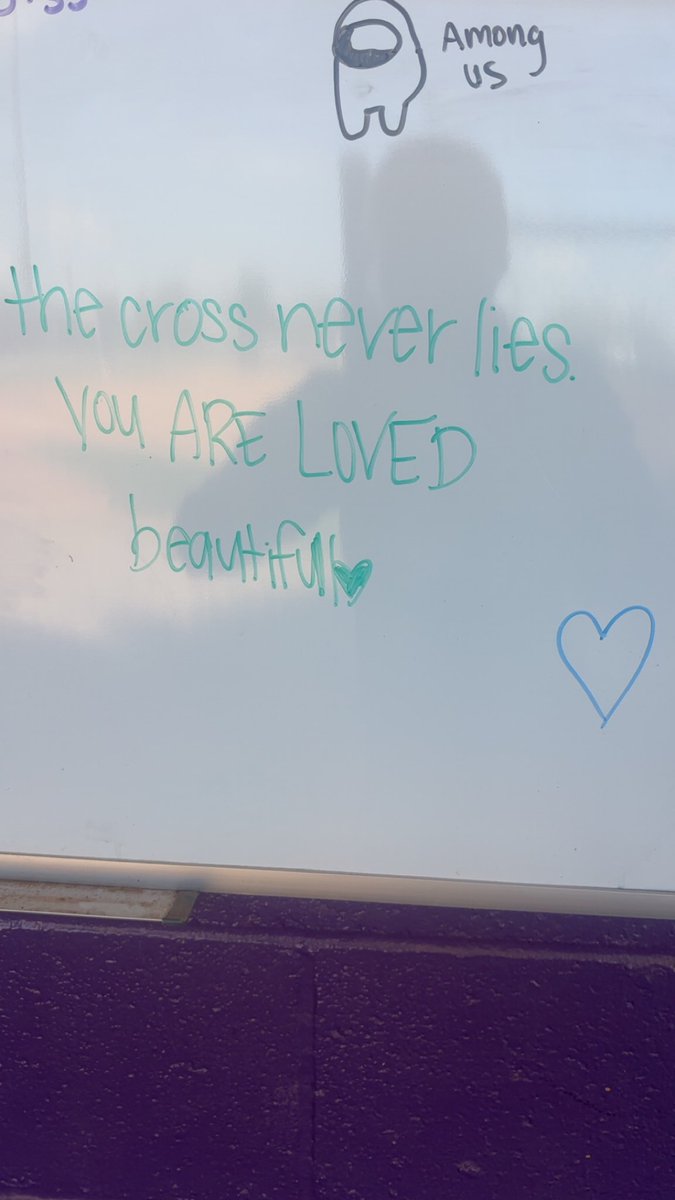 Among
us
the cross never lies.
you ARE LOVED
beautiful